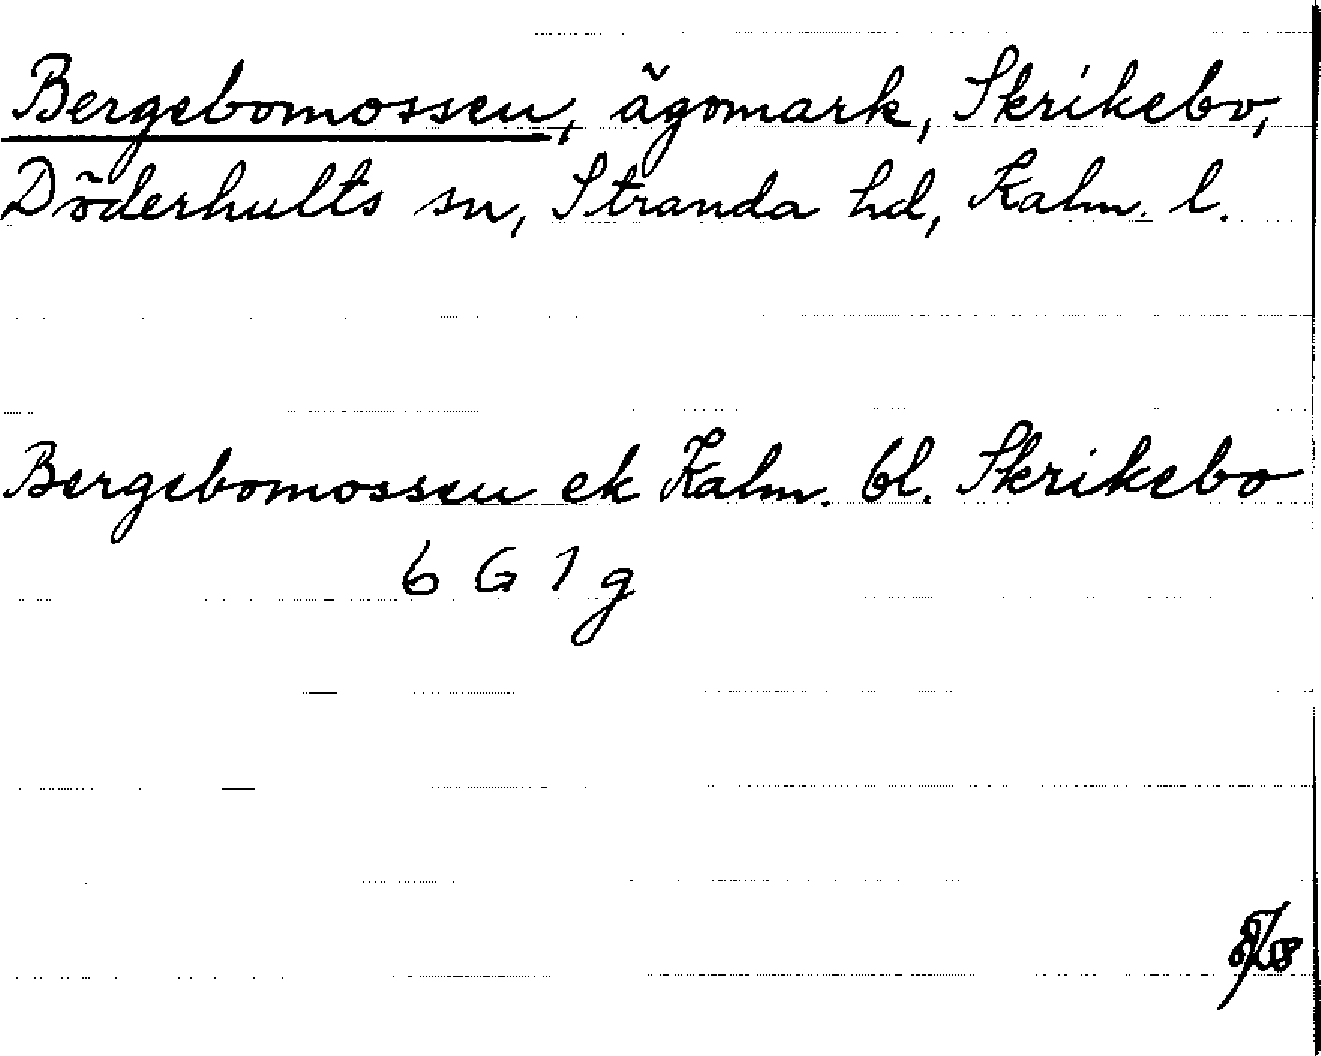 Bergebomossen, ägomark, Skrikebo,
Döderhults sn, Stranda hd, Kalm. l.
Bergebomossen ek Kalm. bl. Skrikebo
6 G 1 g